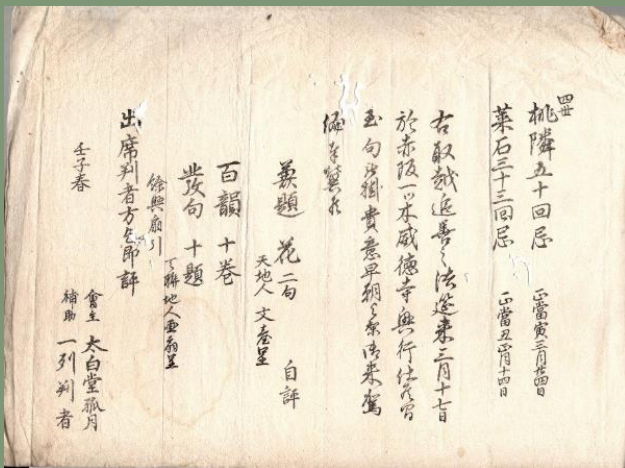 四世
桃隣五十回忌 正當寅三月廿四日
菜石三十三回忌 正當丑正月十四日
右取越追善之法筵来三月十七日
於赤阪一ツ木威徳寺興行仕候間
玉句御掛貴意早朝御来駕
偏奉冀候
兼題 花二句 自評
天地人 文臺呈
百韻 十巻
發句 十題
餘興扇引
出席判者方各即評
壬子春
會主 太白堂孤月
補助 一列判者